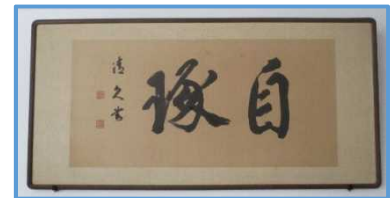 自琢
清久書